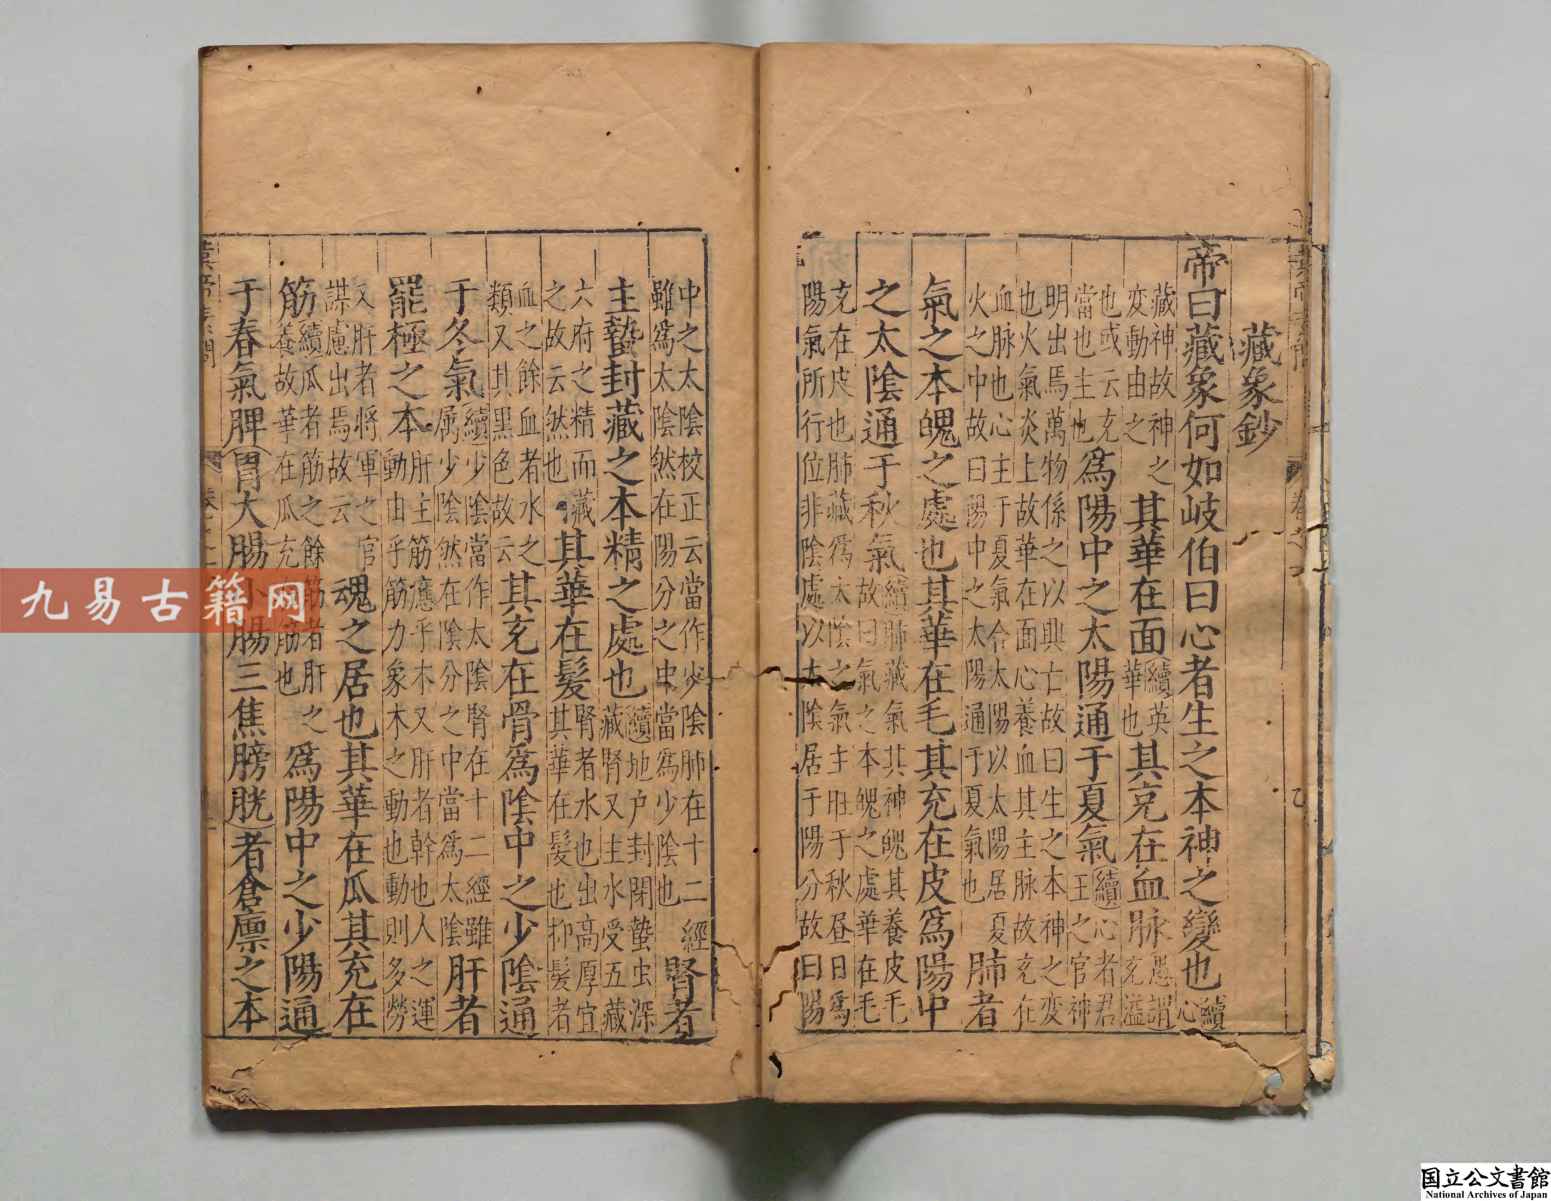 藏象鈔
帝曰藏象何如岐伯曰心者生之本神之變也續心
藏神故神之
变動由之
其華在面
續英
華也
其充在血脉
愚謂
充溢
也或云充
當也主也
爲陽中之太陽通于夏氣
續心者君
王之官神
明出焉萬物係之以興亡故曰生之本神之变
也火氣炎上故華在面心養血其主脉故充在
血脉也心主于夏氣合太陽以太陽居夏
火之中故曰陽中之太陽通于夏氣也
肺者
氣之本魄之處也其華在毛其充在皮爲陽中
之太陰通于秋氣
續肺藏氣其神魄其養皮毛
故曰氣之本魄之處華在毛
充在皮也肺藏爲太陰之氣主旺于秋昼日爲
陽氣所行位非陰處以太陰居于陽分故曰陽
中之太陰校正云當作少陰肺在十二經
雖爲太陰然在陽分之中當爲少陰也
腎者
主蟄封藏之本精之處也
續地户封閉蟄虫深
藏腎又主水受五藏
六府之精而藏
之故云然也
其華在髮
腎者水也出高厚宜
其華在髮也抑髮者
血之餘血者水之
類又其黑色故云
其充在骨爲陰中之少陰通
于冬氣
續少陰當作太陰腎在十二經雖
属少陰然在陰分之中當爲太陰
肝者
罷極之本
肝主筋應乎木又肝者幹也人之運
動由乎筋力象木之動也動則多勞
又肝者將軍之官
謀慮出焉故云
魂之居也其華在瓜其充在
筋
續瓜者筋之餘筋者肝之
養故華在瓜充在筋也
爲陽中之少陽通
于春氣脾胃大腸小腸三焦膀胱者倉廪之本
九易古籍网
国立公文書館
National Archives of Japan